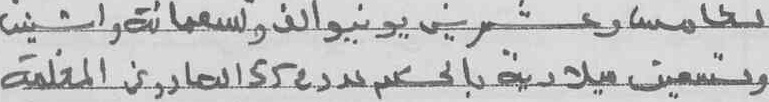 لخامس وعشرين يونيو الف وتسعمائة واثنين
وتسعين ميلادية بالحكم عدد 254 الصادر عن المغلقة